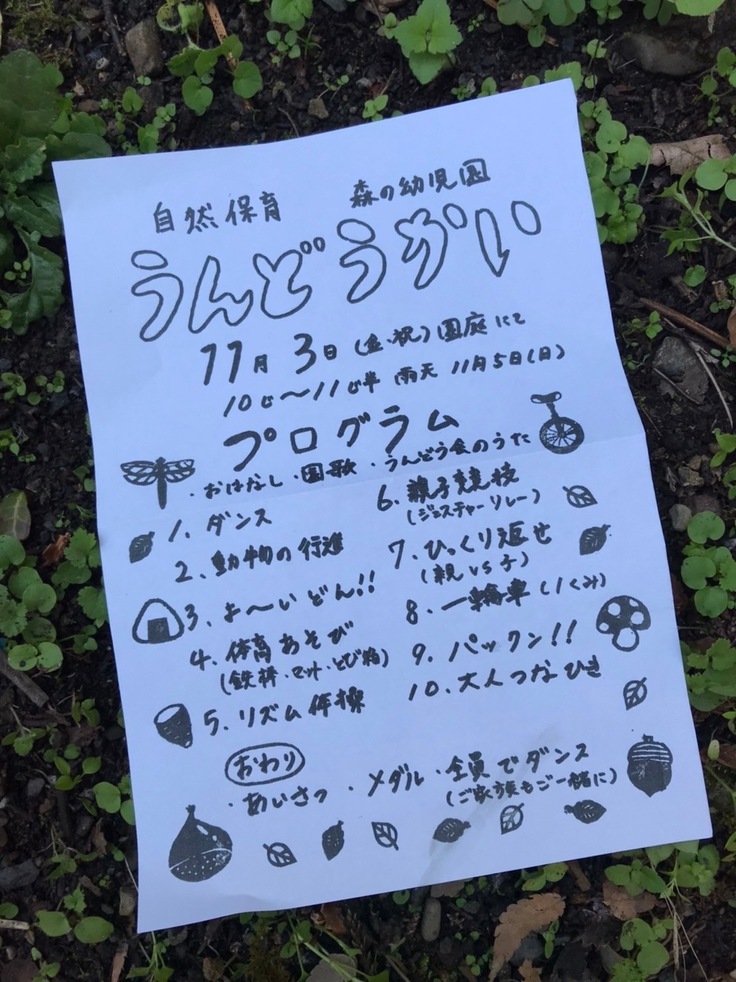 自然保育 森の幼児園
うんどうかい
11月3日(金・祝)園庭にて
10じ〜11じ半 雨天 11月5日(日)
プログラム
・おはなし・園歌・うんどう会のうた
1、ダンス
2、動物の行進
3、よ〜いどん!!
4、体育あそび
(鉄棒・マット・とび箱)
5、リズム体操
6、親子競技
(ジェスチャーリレー)
7、ひっくり返せ
(親 vs 子)
8、一輪車(1くみ)
9、パックン!!
10、大人つなひき
おわり
・あいさつ ・メダル ・全員でダンス
(ご家族もご一緒に)